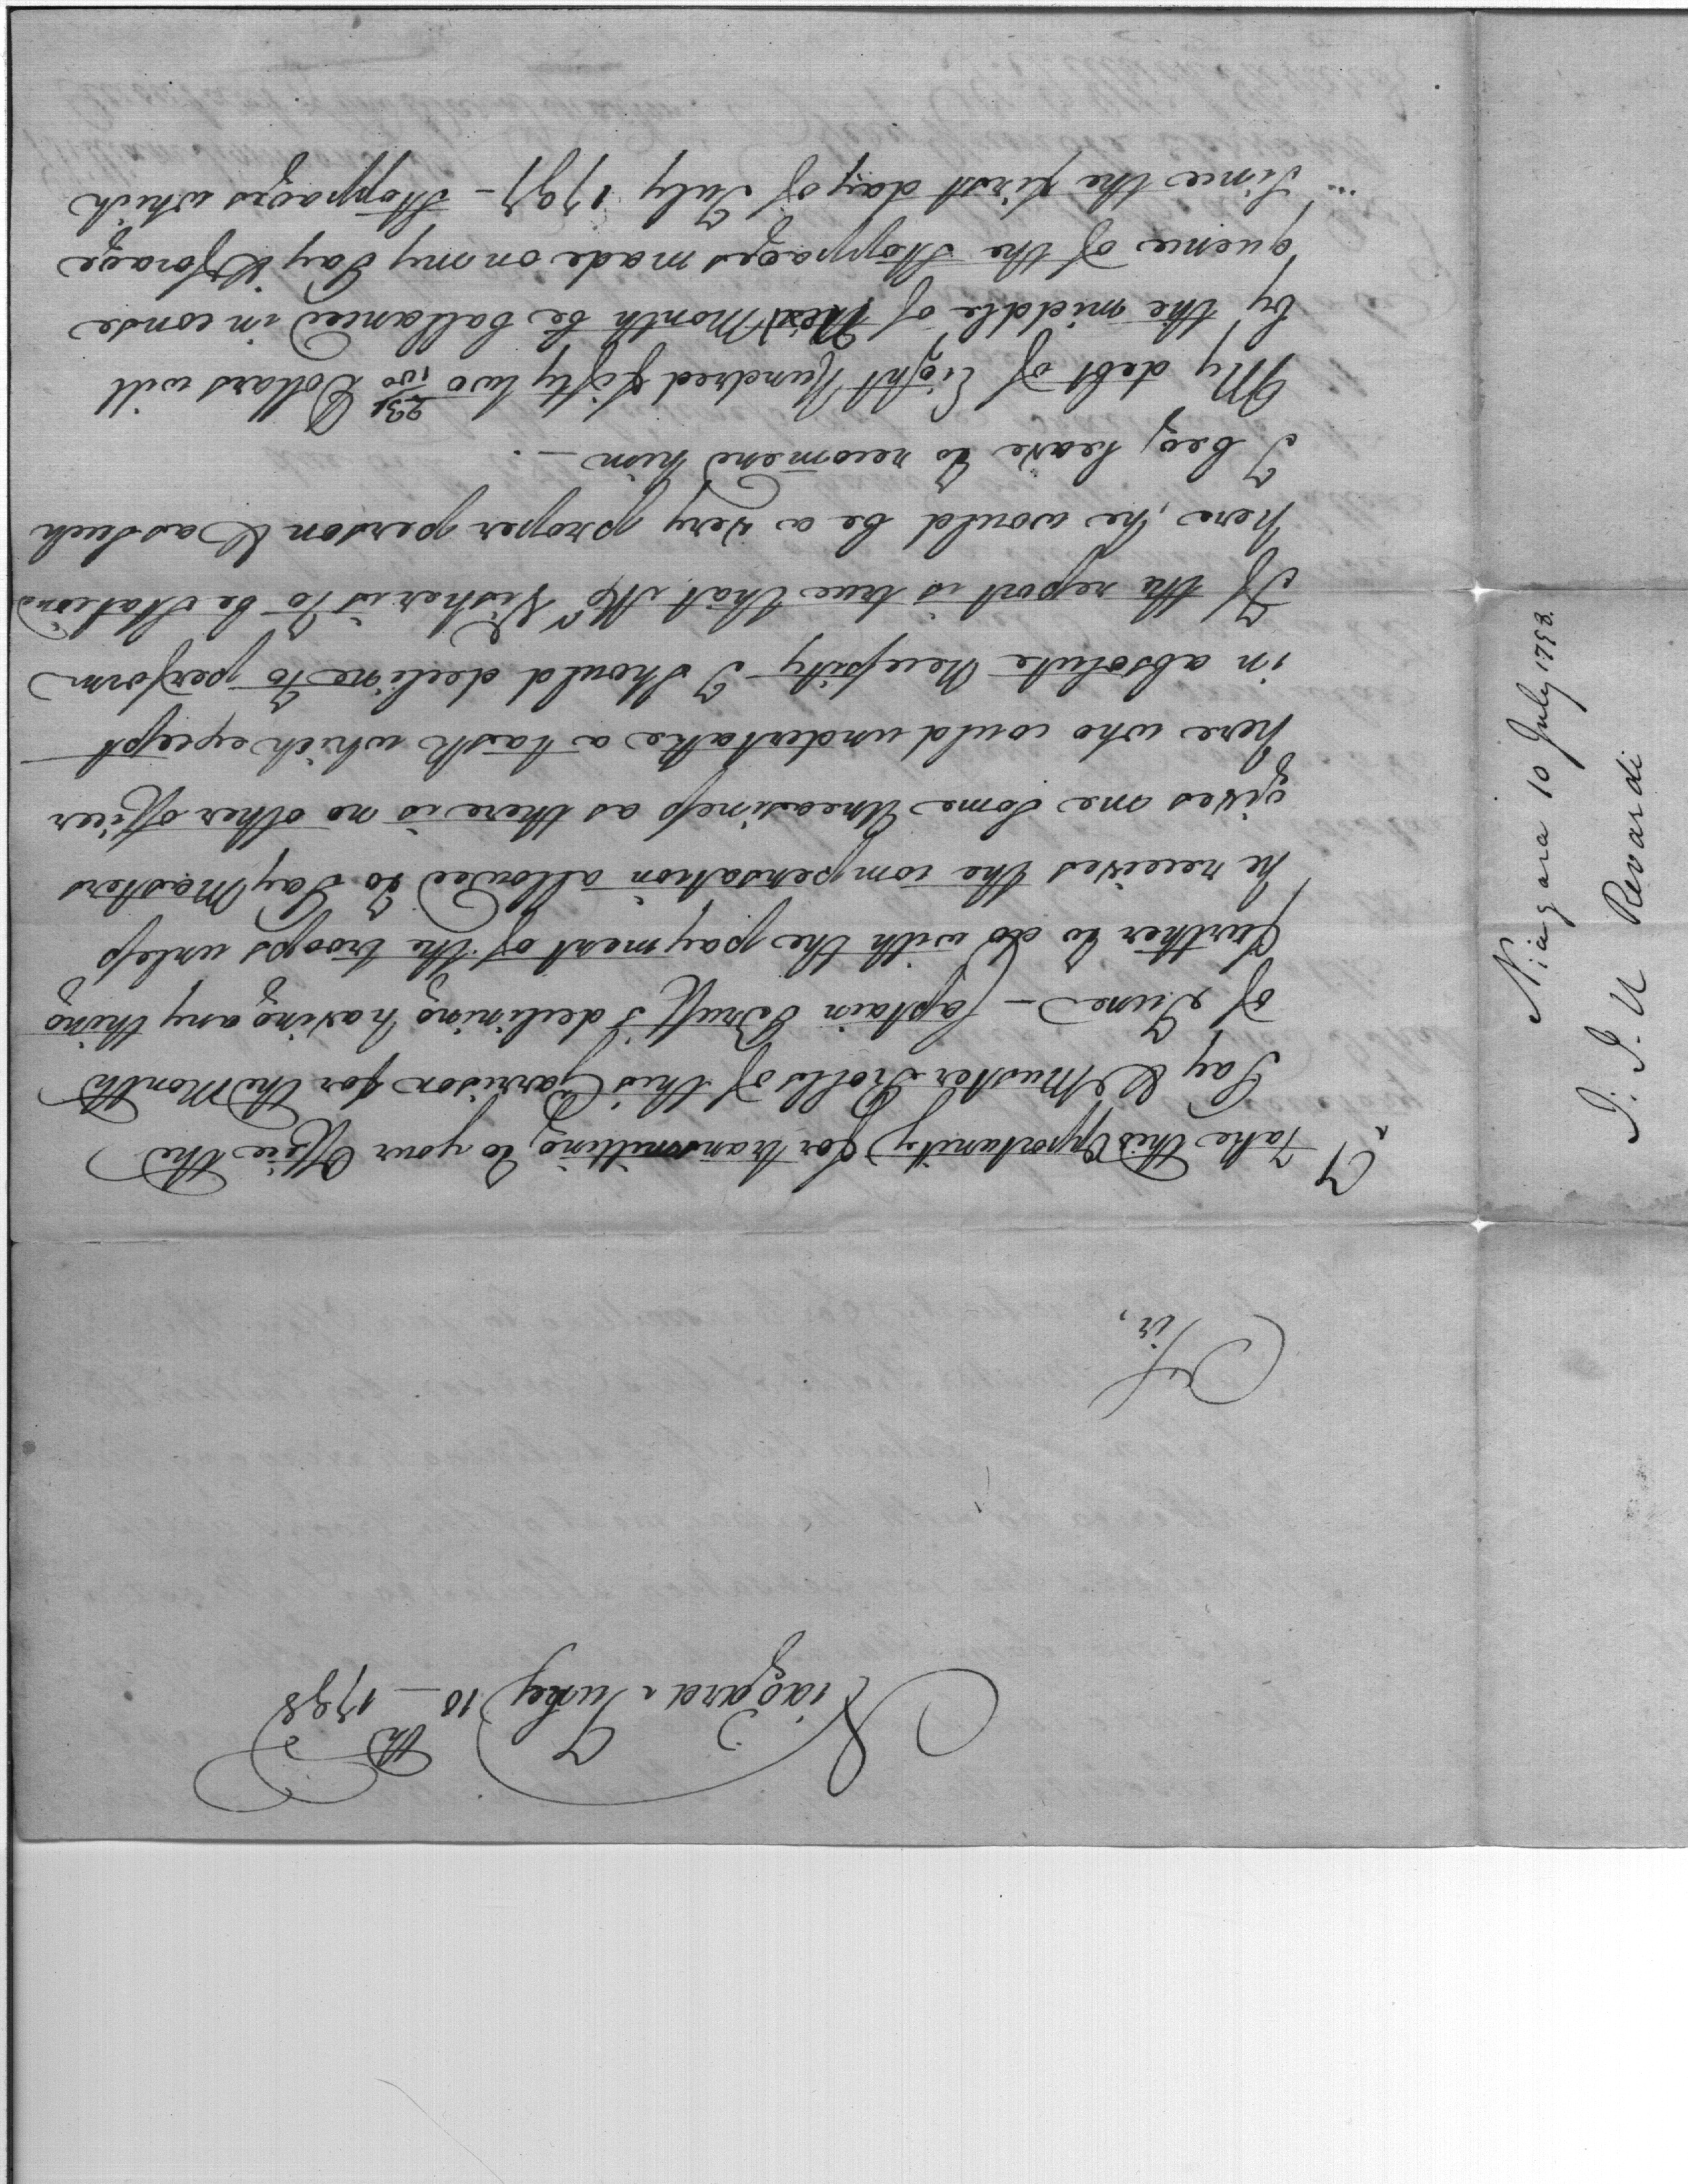 Niagara July 10th 1798
Sir,
I Take this Opportunity for transmitting to your Office the
Pay & Muster Rolls of this Garrison for the Month
of June — Captain Bruff's declining having any thing
further to do with the payment of the troops unless
he receives the compensation allowed to Pay Masters
gives me Some Uneasiness as there is no other officer
here who could undertake a task which except
in absolute Necessity I Should decline to perform
If the report is true that Mr Visher is to be Stationed
here, he would be a very proper person & as Such
I beg leave to recomend him —.
My debt of Eight hundred fifty two 23/100 Dollars will
by the middle of Next Month be ballanced in conse
quence of the Stoppages made on my Pay & forage
Since the first day of July 1797 — Stoppages which
Niagara 10 July 1798.
J. J. U Rivardi